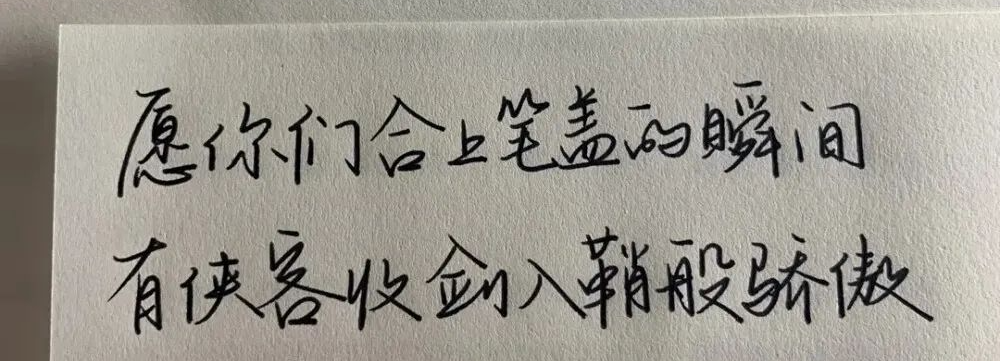 愿你们合上笔盖的瞬间
有侠客收剑入鞘般骄傲